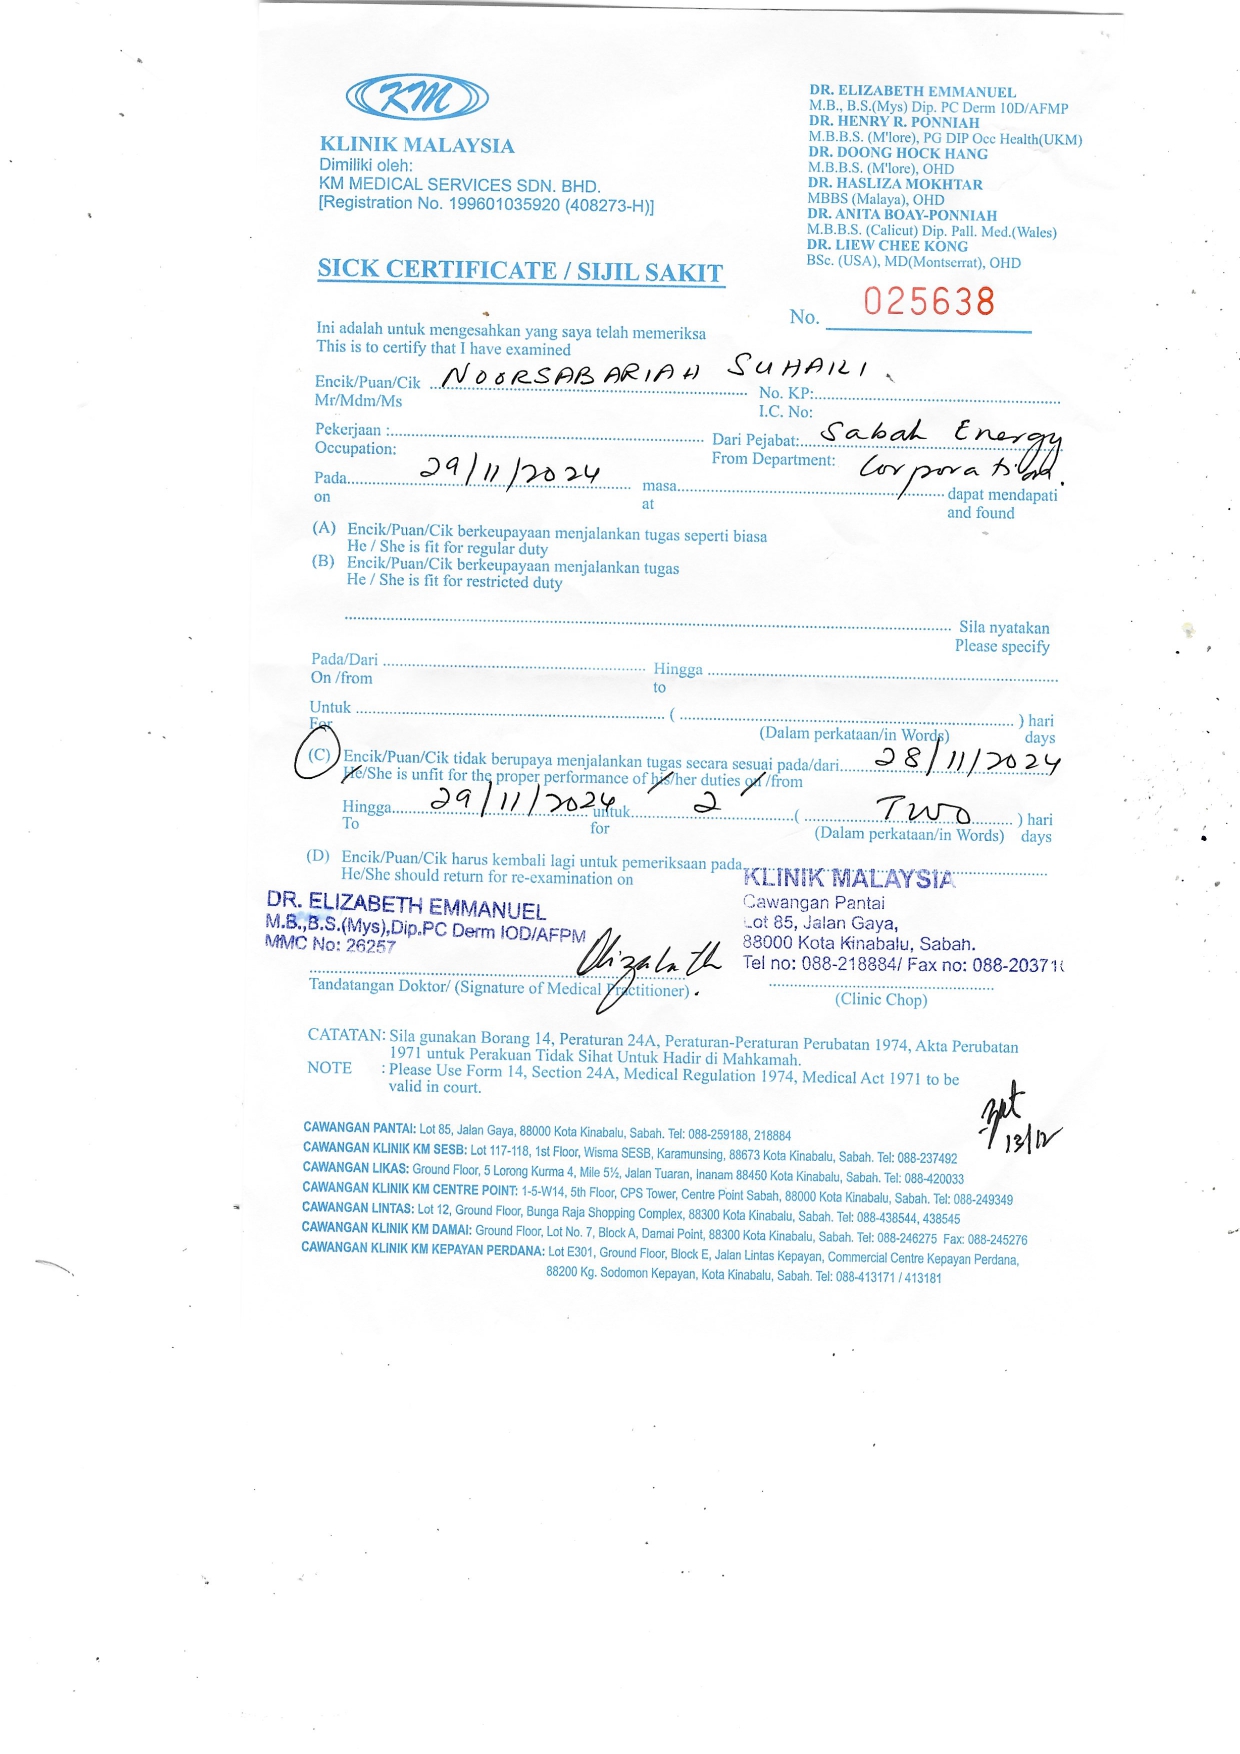 KM
KLINIK MALAYSIA
Dimiliki oleh:
KM MEDICAL SERVICES SDN. BHD.
[Registration No. 199601035920 (408273-H)]
DR. ELIZABETH EMMANUEL
M.B., B.S.(Mys) Dip. PC Derm 10D/AFMP
DR. HENRY R. PONNIAH
M.B.B.S. (M'lore), PG DIP Occ Health(UKM)
DR. DOONG HOCK HANG
M.B.B.S. (M'lore), OHD
DR. HASLIZA MOKHTAR
MBBS (Malaya), OHD
DR. ANITA BOAY-PONNIAH
M.B.B.S. (Calicut) Dip. Pall. Med.(Wales)
DR. LIEW CHEE KONG
BSc. (USA), MD(Montserrat), OHD
SICK CERTIFICATE / SIJIL SAKIT
No. 025638
Ini adalah untuk mengesahkan yang saya telah memeriksa
This is to certify that I have examined
Encik/Puan/Cik NOORSABARIAH SUHAILI. No. KP:
Mr/Mdm/Ms I.C. No:
Pekerjaan : Dari Pejabat: Sabah Energy
Occupation: From Department: Corporation.
Pada 29/11/2024 masa dapat mendapati
on at and found
(A) Encik/Puan/Cik berkeupayaan menjalankan tugas seperti biasa
He / She is fit for regular duty
(B) Encik/Puan/Cik berkeupayaan menjalankan tugas
He / She is fit for restricted duty
Sila nyatakan
Please specify
Pada/Dari Hingga
On /from to
Untuk ( ) hari
For (Dalam perkataan/in Words) days
(C) Encik/Puan/Cik tidak berupaya menjalankan tugas secara sesuai pada/dari 28/11/2024
He/She is unfit for the proper performance of his/her duties on /from
Hingga 29/11/2024 untuk 2 ( TWO ) hari
To for (Dalam perkataan/in Words) days
(D) Encik/Puan/Cik harus kembali lagi untuk pemeriksaan pada
He/She should return for re-examination on
DR. ELIZABETH EMMANUEL
M.B.,B.S.(Mys),Dip.PC Derm IOD/AFPM
MMC No: 26257
Elizabeth
Tandatangan Doktor/ (Signature of Medical Practitioner)
KLINIK MALAYSIA
Cawangan Pantai
Lot 85, Jalan Gaya,
88000 Kota Kinabalu, Sabah.
Tel no: 088-218884/ Fax no: 088-20371
(Clinic Chop)
CATATAN: Sila gunakan Borang 14, Peraturan 24A, Peraturan-Peraturan Perubatan 1974, Akta Perubatan
1971 untuk Perakuan Tidak Sihat Untuk Hadir di Mahkamah.
NOTE : Please Use Form 14, Section 24A, Medical Regulation 1974, Medical Act 1971 to be
valid in court.
13/12
CAWANGAN PANTAI: Lot 85, Jalan Gaya, 88000 Kota Kinabalu, Sabah. Tel: 088-259188, 218884
CAWANGAN KLINIK KM SESB: Lot 117-118, 1st Floor, Wisma SESB, Karamunsing, 88673 Kota Kinabalu, Sabah. Tel: 088-237492
CAWANGAN LIKAS: Ground Floor, 5 Lorong Kurma 4, Mile 5½, Jalan Tuaran, Inanam 88450 Kota Kinabalu, Sabah. Tel: 088-420033
CAWANGAN KLINIK KM CENTRE POINT: 1-5-W14, 5th Floor, CPS Tower, Centre Point Sabah, 88000 Kota Kinabalu, Sabah. Tel: 088-249349
CAWANGAN LINTAS: Lot 12, Ground Floor, Bunga Raja Shopping Complex, 88300 Kota Kinabalu, Sabah. Tel: 088-438544, 438545
CAWANGAN KLINIK KM DAMAI: Ground Floor, Lot No. 7, Block A, Damai Point, 88300 Kota Kinabalu, Sabah. Tel: 088-246275 Fax: 088-245276
CAWANGAN KLINIK KM KEPAYAN PERDANA: Lot E301, Ground Floor, Block E, Jalan Lintas Kepayan, Commercial Centre Kepayan Perdana,
88200 Kg. Sodomon Kepayan, Kota Kinabalu, Sabah. Tel: 088-413171 / 413181